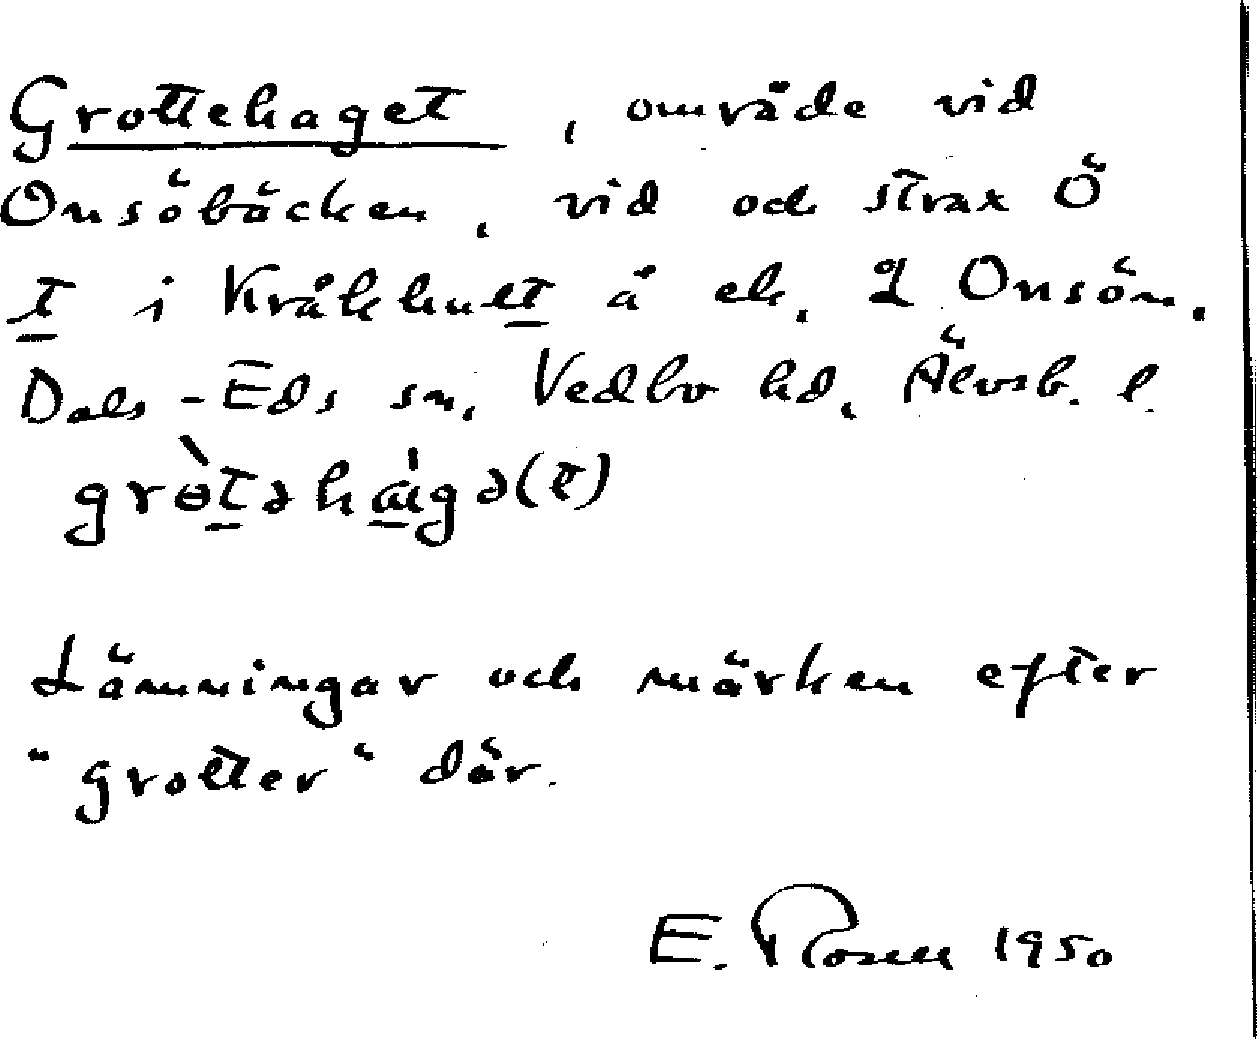 Grottehaget, område vid
Onsöbäcken, vid och strax Ö
t i Kråkhult å ek. Onsön.
Dals-Eds sn, Vedbo hd, Älvsb. l.
grɵ̀təhaigə(t)
Lämningar och märken efter
"grotter" där.
E. Rosell 1950